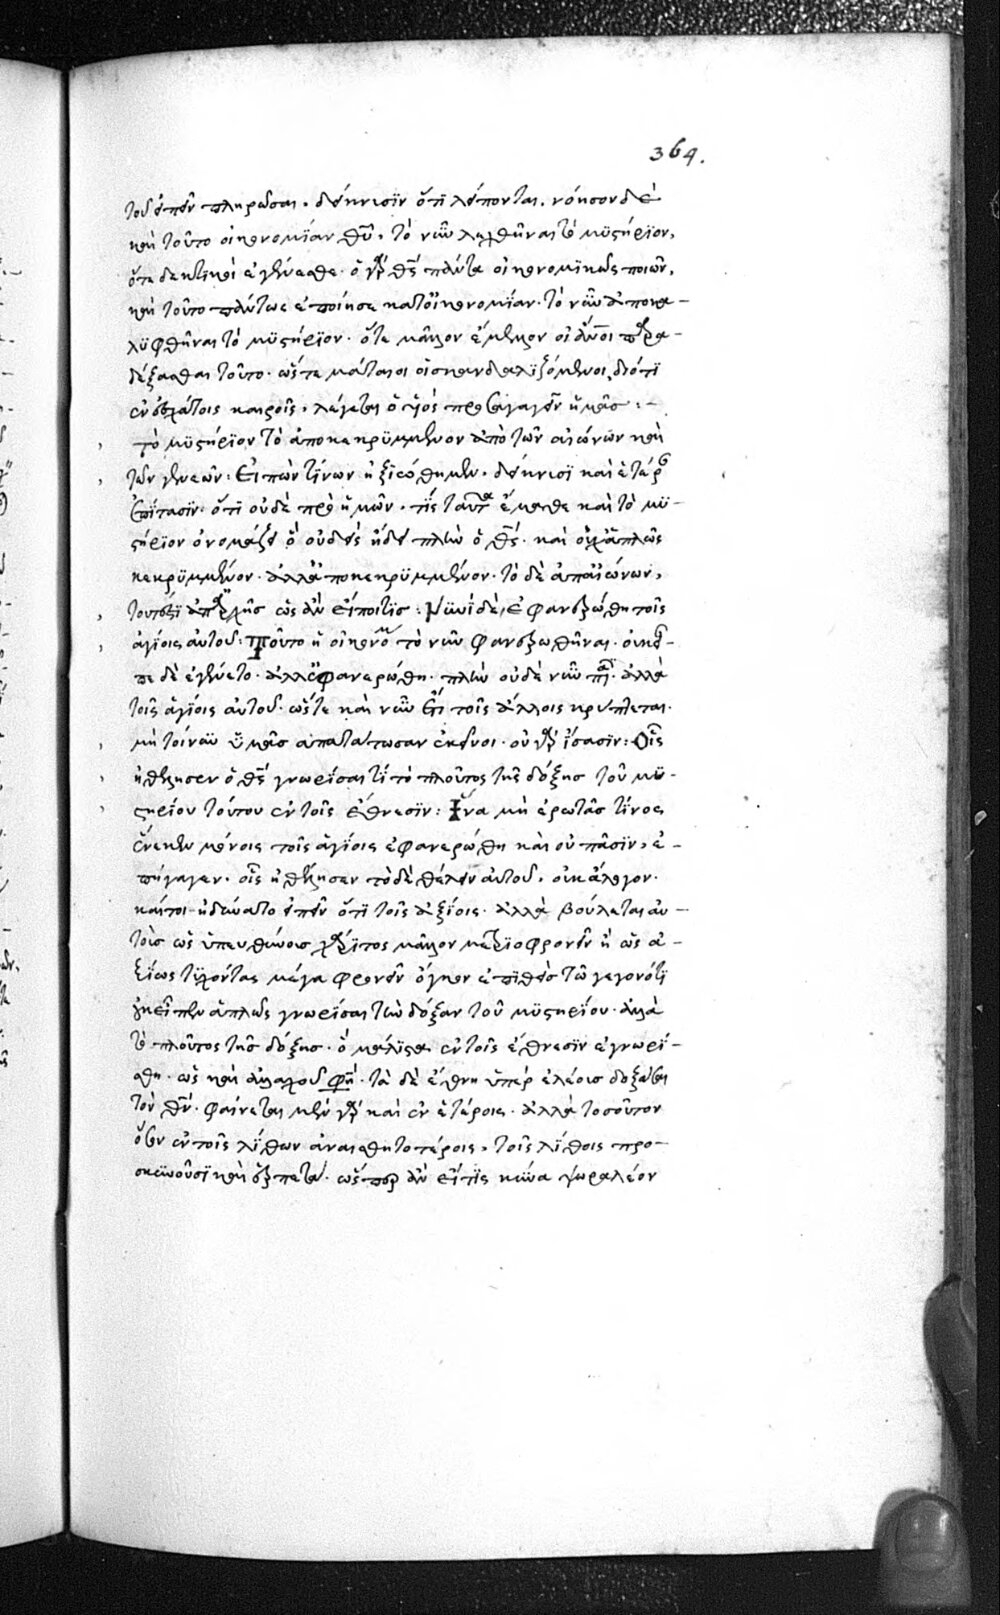 364.
τοῦ εἰπεῖν πληρῶσαι. δείκνυσιν ὅτι λείπονται. νόησον δὲ
καὶ τοῦτο οἰκονομίαν θῦ, τὸ νῦν λεχθῆναι τὸ μυστήριον,
ὅτε δεκτικοὶ ἐγένεσθε. ὁ γὰρ θς πάντα οἰκονομικῶς ποιῶν,
καὶ τοῦτο πάντως ἐποίησε κατοἰκονομίαν. τὸ νῦν ἀποκα-
λυφθῆναι τὸ μυστήριον. ὅτε μᾶλλον ἔμελλον οἱ ἄνοι παρα-
δέξασθαι τοῦτο. ὥστε μάταιοι οἱ σκανδαλιζόμενοι, διότι
ἐν ἐσχάτοις καιροῖς, λέγεται ὁ υἱὸς προσαγαγεῖν ἡμᾶς :-
τὸ μυστήριον τὸ ἀποκεκρυμμένον ἀπὸ τῶν αἰώνων καὶ
τῶν γενεῶν: Εἰπὼν τίνων ἠξιώθημεν. δείκνυσι καὶ ἑτέραν
ἐπίτασιν. ὅτι οὐδὲ πρὸ ἡμῶν, τὶς ταῦτα ἔμαθε καὶ τὸ μυ-
στήριον ὀνομάζει ὃ οὐδεὶς ᾔδει πλὴν ὁ θς. καὶ οὐχἁπλῶς
κεκρυμμένον. ἀλλἀποκεκρυμμένον. τὸ δὲ ἀπαἰώνων,
τουτέστι ἀπαρχῆς ὡς ἂν εἴποι τις: Νυνὶ δὲ, ἐφανερώθη τοῖς
ἁγίοις αὐτοῦ: Τοῦτο ἡ οἰκονομία τὸ νῦν φανερωθῆναι. οὐκ
δὲ ἐγένετο. ἀλλἐφανερώθη. πλὴν οὐδὲ νῦν πᾶσι. ἀλλὰ
τοῖς ἁγίοις αὐτοῦ. ὥστε καὶ νῦν ἔτι τοῖς ἄλλοις κρύπτεται.
μὴ τοίνυν ὑμᾶς ἀπατάτωσαν ἐκεῖνοι. οὐ γὰρ ἴσασιν: Οἷς
ἠθέλησεν ὁ θς γνωρίσαι τί τὸ πλοῦτος τῆς δόξης τοῦ μυ-
στηρίου τούτου ἐν τοῖς ἔθνεσιν: Ἵνα μὴ ἐρωτᾶς τίνος
ἕνεκεν μόνοις τοῖς ἁγίοις ἐφανερώθη καὶ οὐ πᾶσιν, ἐ-
πήγαγεν. οἷς ἠθέλησεν τὸ δὲ θέλειν αὐτοῦ, οὐκ ἄλογον.
καίτοι ἠδύνατο εἰπεῖν ὅτι τοῖς ἀξίοις. ἀλλὰ βούλεται αὐ-
τοὺς ὡς ὑπευθύνους χάριτος μᾶλλον μετριοφρονεῖν ἢ ὡς ἀ-
ξίως τυχόντας μέγα φρονεῖν ὄγκον ἐπιθεὶς τῷ γεγονότι
οὐκ εἶπεν ἁπλῶς γνωρίσαι τὴν δόξαν τοῦ μυστηρίου. ἀλλὰ
τὸ πλοῦτος τῆς δόξης. ὃ μάλιστα ἐν τοῖς ἔθνεσιν ἐγνωρί-
σθη. ὡς καὶ ἀλλαχοῦ φη. τὰ δὲ ἔθνη ὑπὲρ ἐλέους δοξάσαι
τὸν θν. φαίνεται μὲν γὰρ καὶ ἐν ἑτέροις. ἀλλὰ τοσοῦτον
ὅσον ἐν τοῖς λίθων ἀναισθητοτέροις, τοῖς λίθοις προ-
σκυνοῦσι καὶ ἑρπετά. ὥσπερ ἂν εἴ τις κύνα ψωραλέον